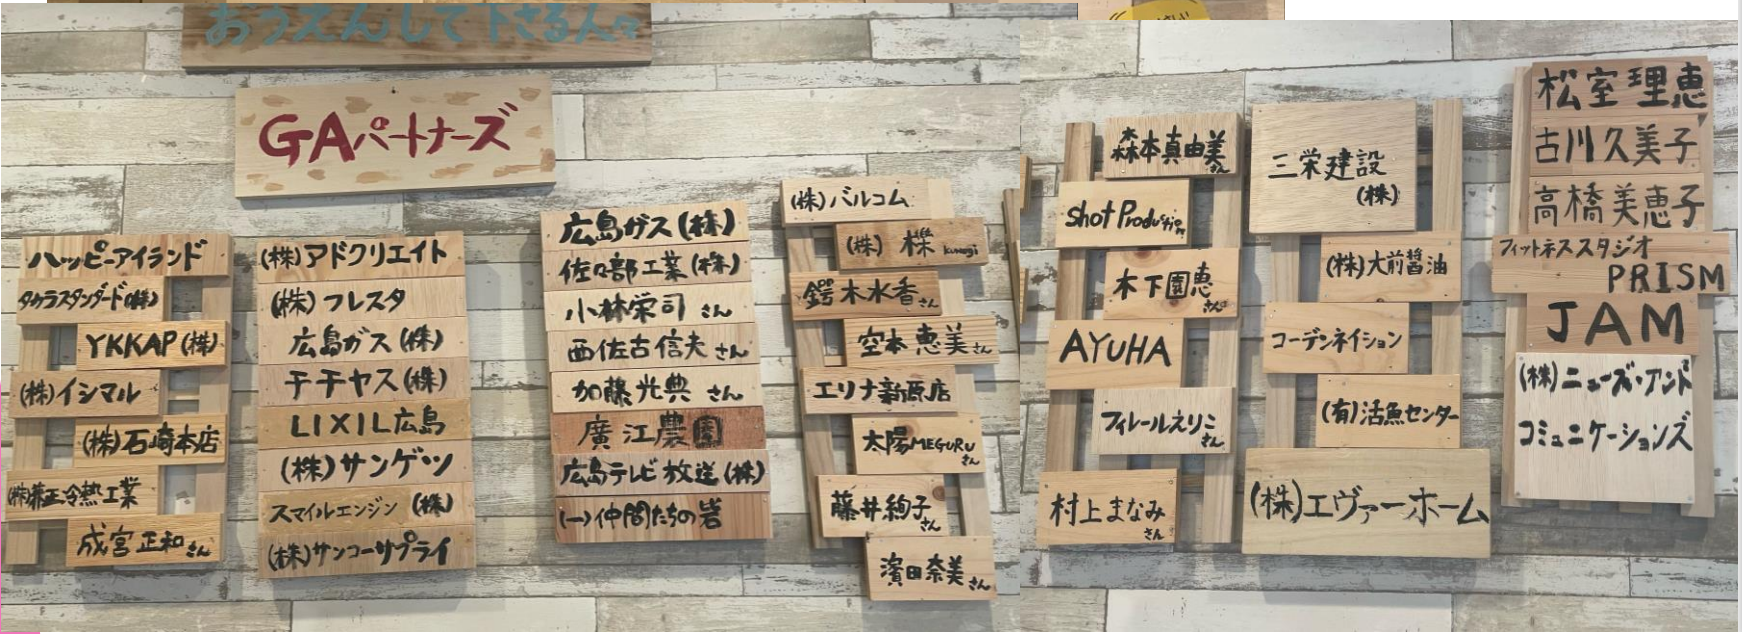 おうえんして下さる人々
GAパートナーズ
ハッピーアイランド
タカラスタンダード(株)
YKKAP(株)
(株)イシマル
(株)石崎本店
(株)兼正冷熱工業
成宮正和さん
(株)アドクリエイト
(株)フレスタ
広島ガス(株)
チチヤス(株)
LIXIL広島
(株)サンゲツ
スマイルエンジン(株)
(株)サンコーサプライ
広島ガス(株)
佐々部工業(株)
小林栄司さん
西佐古信夫さん
加藤光典さん
廣江農園
広島テレビ放送(株)
(一)仲間たちの砦
(株)バルコム
(株)櫟 kunugi
鍔木水香さん
空本恵美さん
エリナ新原店
太陽MEGURUさん
藤井絢子さん
濱田奈美さん
森本真由美さん
Shot Production
木下園恵さん
AYUHA
フィレールえりこさん
村上まなみさん
三栄建設
(株)
(株)大前醤油
コーデンネイション
(有)活魚センター
(株)エヴァーホーム
松室理恵
古川久美子
高橋美恵子
フィットネススタジオ
PRISM
JAM
(株)ニューズ・アンド
コミュニケーションズ